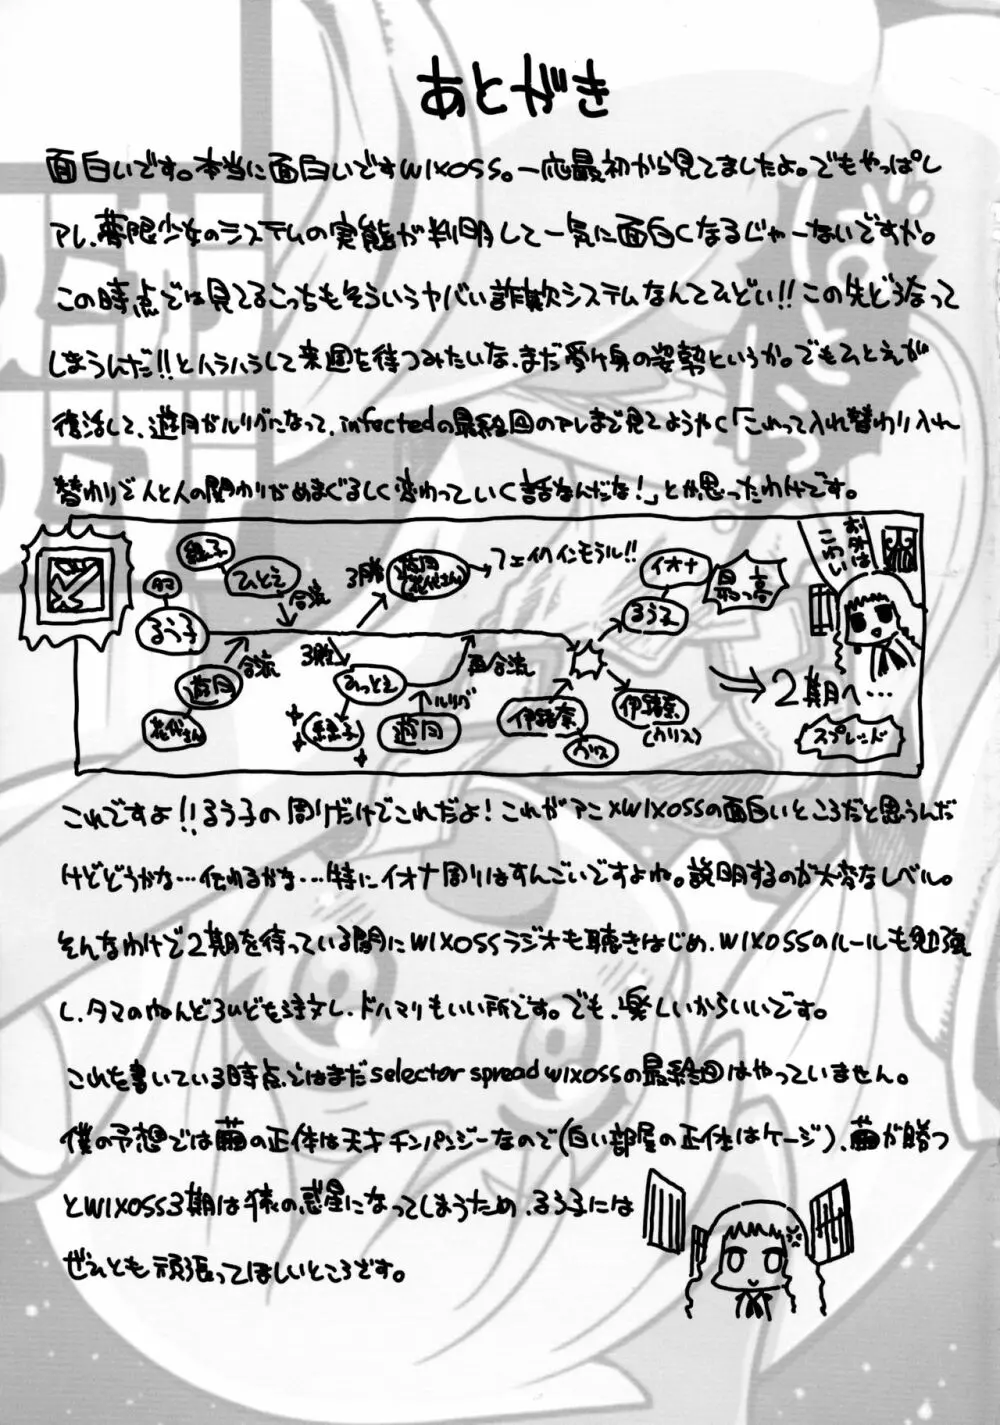 あとがき
面白いです。本当に面白いですWIXOSS。一応最初から見てましたよ。でもやっぱし
アレ、夢限少女のシステムの実態が判明して一気に面白くなるじゃーないですか。
この時点では見てるこっちもそういうヤバい詐欺システムなんてひどい!!この先どうなって
しまうんだ!!とハラハラして来週を待つみたいな、まだ受け身の姿勢というか。でもひとえが
復活して、遊月がルリグになって、infectedの最終回のアレまで見てようやく「これって入れ替わり入れ
替わりで人と人の関わりがめまぐるしく変わっていく話なんだな!」とか思ったわけです。
タマ
るう子
緑子
ひとえ
合流
遊月
花代さん
合流
3勝
遊月
(花代さん)
フェイクインモラル!!
3敗
ひとえ
緑子
再合流
ルリグ
遊月
伊緒奈
ウリス
伊緒奈
(ウリス)
イオナ
るう子
最っ高
お外は
こわい
2期へ…
スプレッド
これですよ!!るう子の周りだけでこれだよ!これがアニメWIXOSSの面白いところだと思うんだ
けどどうかな…伝わるかな…特にイオナ周りはすんごいですよね。説明するのが大変なレベル。
そんなわけで2期を待っている間にWIXOSSラジオも聴きはじめ、WIXOSSのルールも勉強
し、タマのねんどろいども注文し、ドハマリもいい所です。でも、楽しいからいいです。
これを書いている時点ではまだselector spread wixossの最終回はやっていません。
僕の予想では繭の正体は天才チンパンジーなので(白い部屋の正体はケージ)、繭が勝つ
とWIXOSS3期は猿の惑星になってしまうため、るう子には
ぜひとも頑張ってほしいところです。